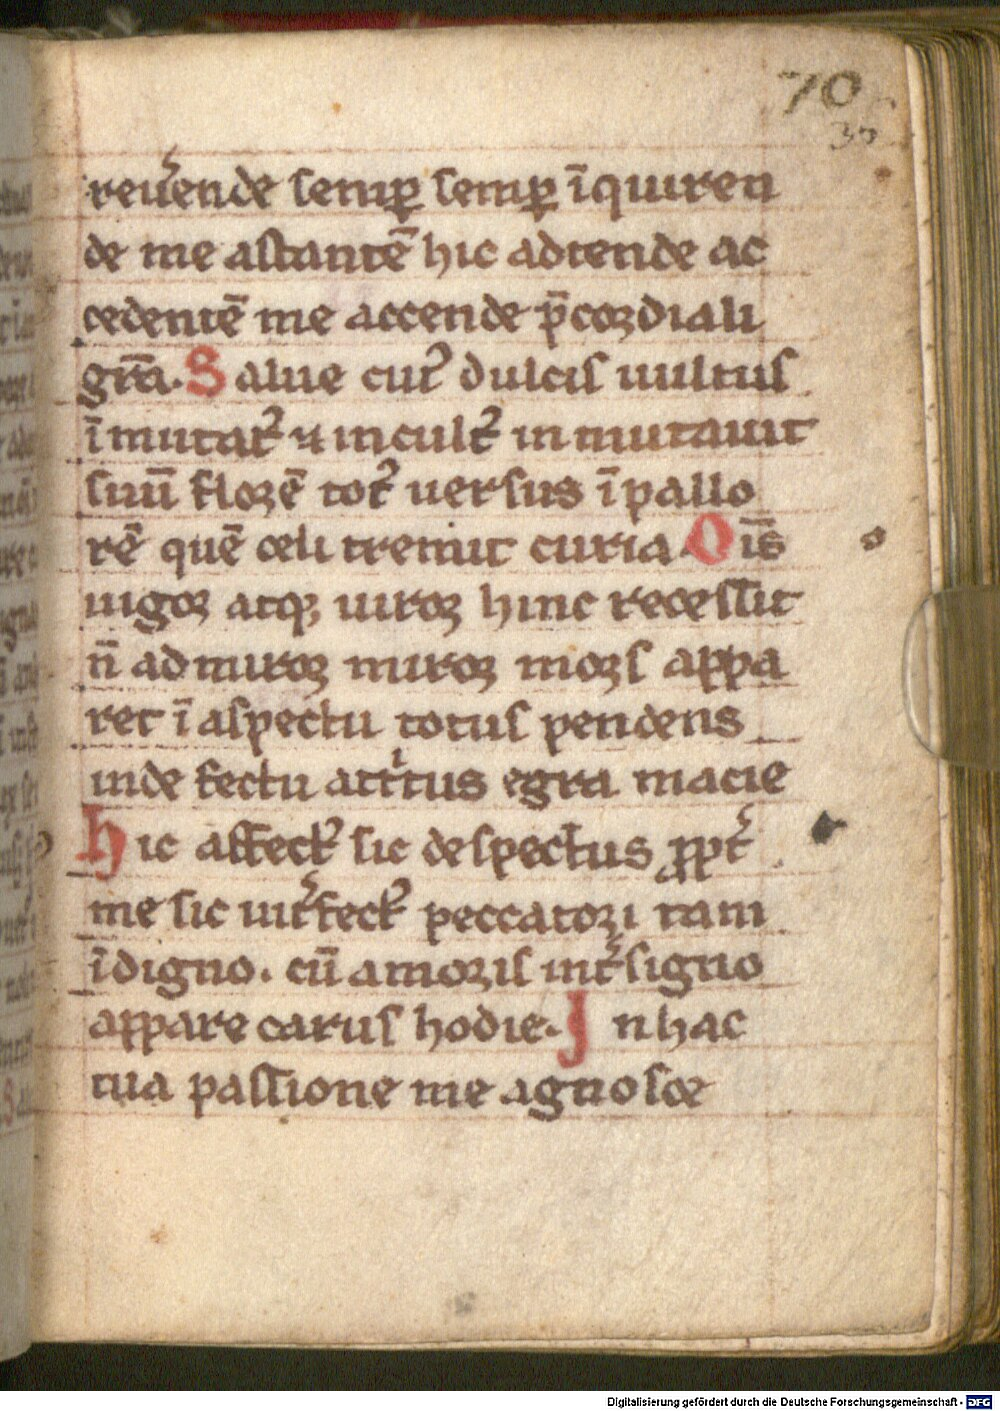 70
37
reu̓ende semꝑ semꝑ īquiren
de me astantē hic adtende ac
cedentē me accende p̄cordiali
gr̄a. Salue cui᷒ dulcis uultus
īmutat᷒ ⁊ incult᷒ inmutauit
suū florē tot᷒ uersus ī pallo
rē quē celi tremit curia. Oīs
uigoꝛ atqꝫ uiroꝛ hinc recessit
n̄ admiroꝛ miroꝛ moꝛs appa
ret ī aspectu totus pendens
indefectu attͥtus egra macie
hic affect᷒ sic despectus ꝓpt̓
me sic int̓fect᷒ peccatoꝛi tam
īdigno. cū amoꝛis int̓signo
appare carus hodie. In hac
tua passione me agnosce
Digitalisierung gefördert durch die Deutsche Forschungsgemeinschaft - DFG